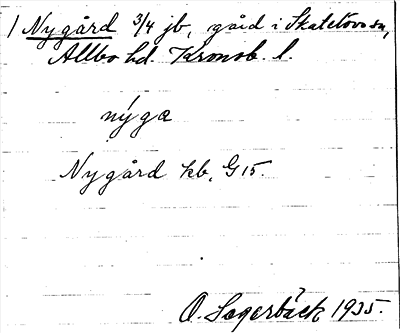 1 Nygård 3/4 jb, gård i Skatelövs sn,
Allbo hd. Kronob. l.
nýga
Nygård kb, G 15.
O. Lagerbäck 1935.